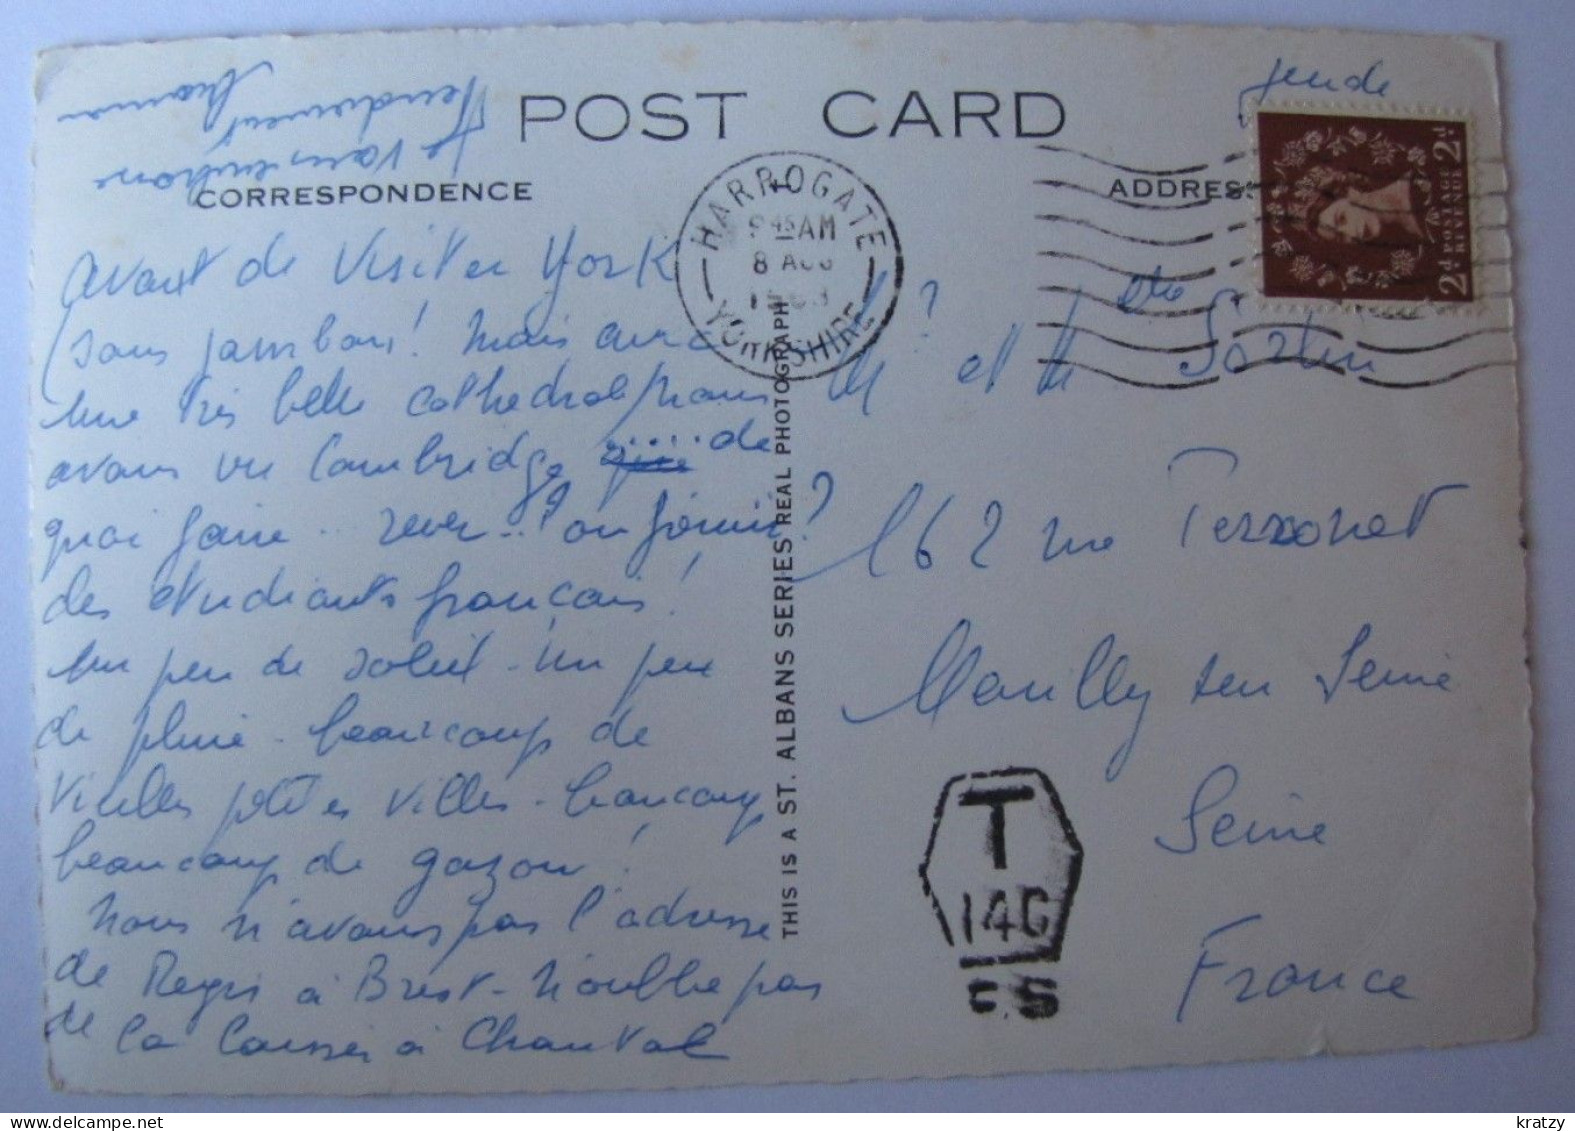 POST CARD
CORRESPONDENCE
ADDRES
jeudi
HARROGATE
9 45 AM
8 AUG
YORKSHIRE
POSTAGE REVENUE
2d 2d
avant de visiter York
(sans jambon! mais avec
une très belle cathédrale) nous
avons vu Cambridge de
quoi faire .. rever .. ou fémir?
des etudiants français!
un peu de soleil - un peu
de pluie - beaucoup de
vieilles petites villes - beaucoup
beaucoup de gazon!
Nous n'avons pas l'adresse
de Regis à Brest - n'oublie pas
de la laisser à Chantal
Je vous embrasse
Tendrement
M et M
162 rue Perronet
Neuilly sur Seine
Seine
France
T
14C
THIS IS A ST. ALBANS SERIES REAL PHOTOGRAPH
kratzy